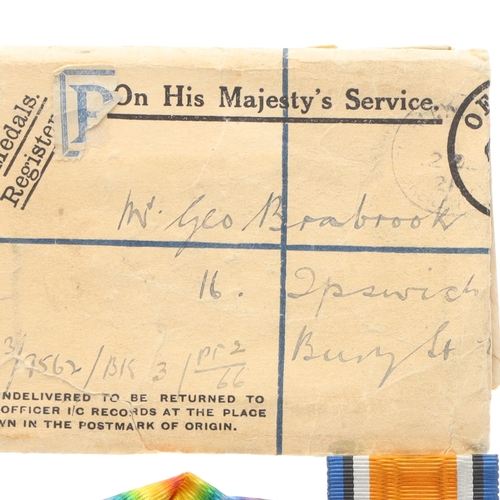 Medals.
Register
P
On His Majesty's Service.
Mr. Geo Brabrook
16. Ipswich
Bury St
3/7562/BK 3/PF2/66
UNDELIVERED TO BE RETURNED TO
OFFICER I/C RECORDS AT THE PLACE
WN IN THE POSTMARK OF ORIGIN.